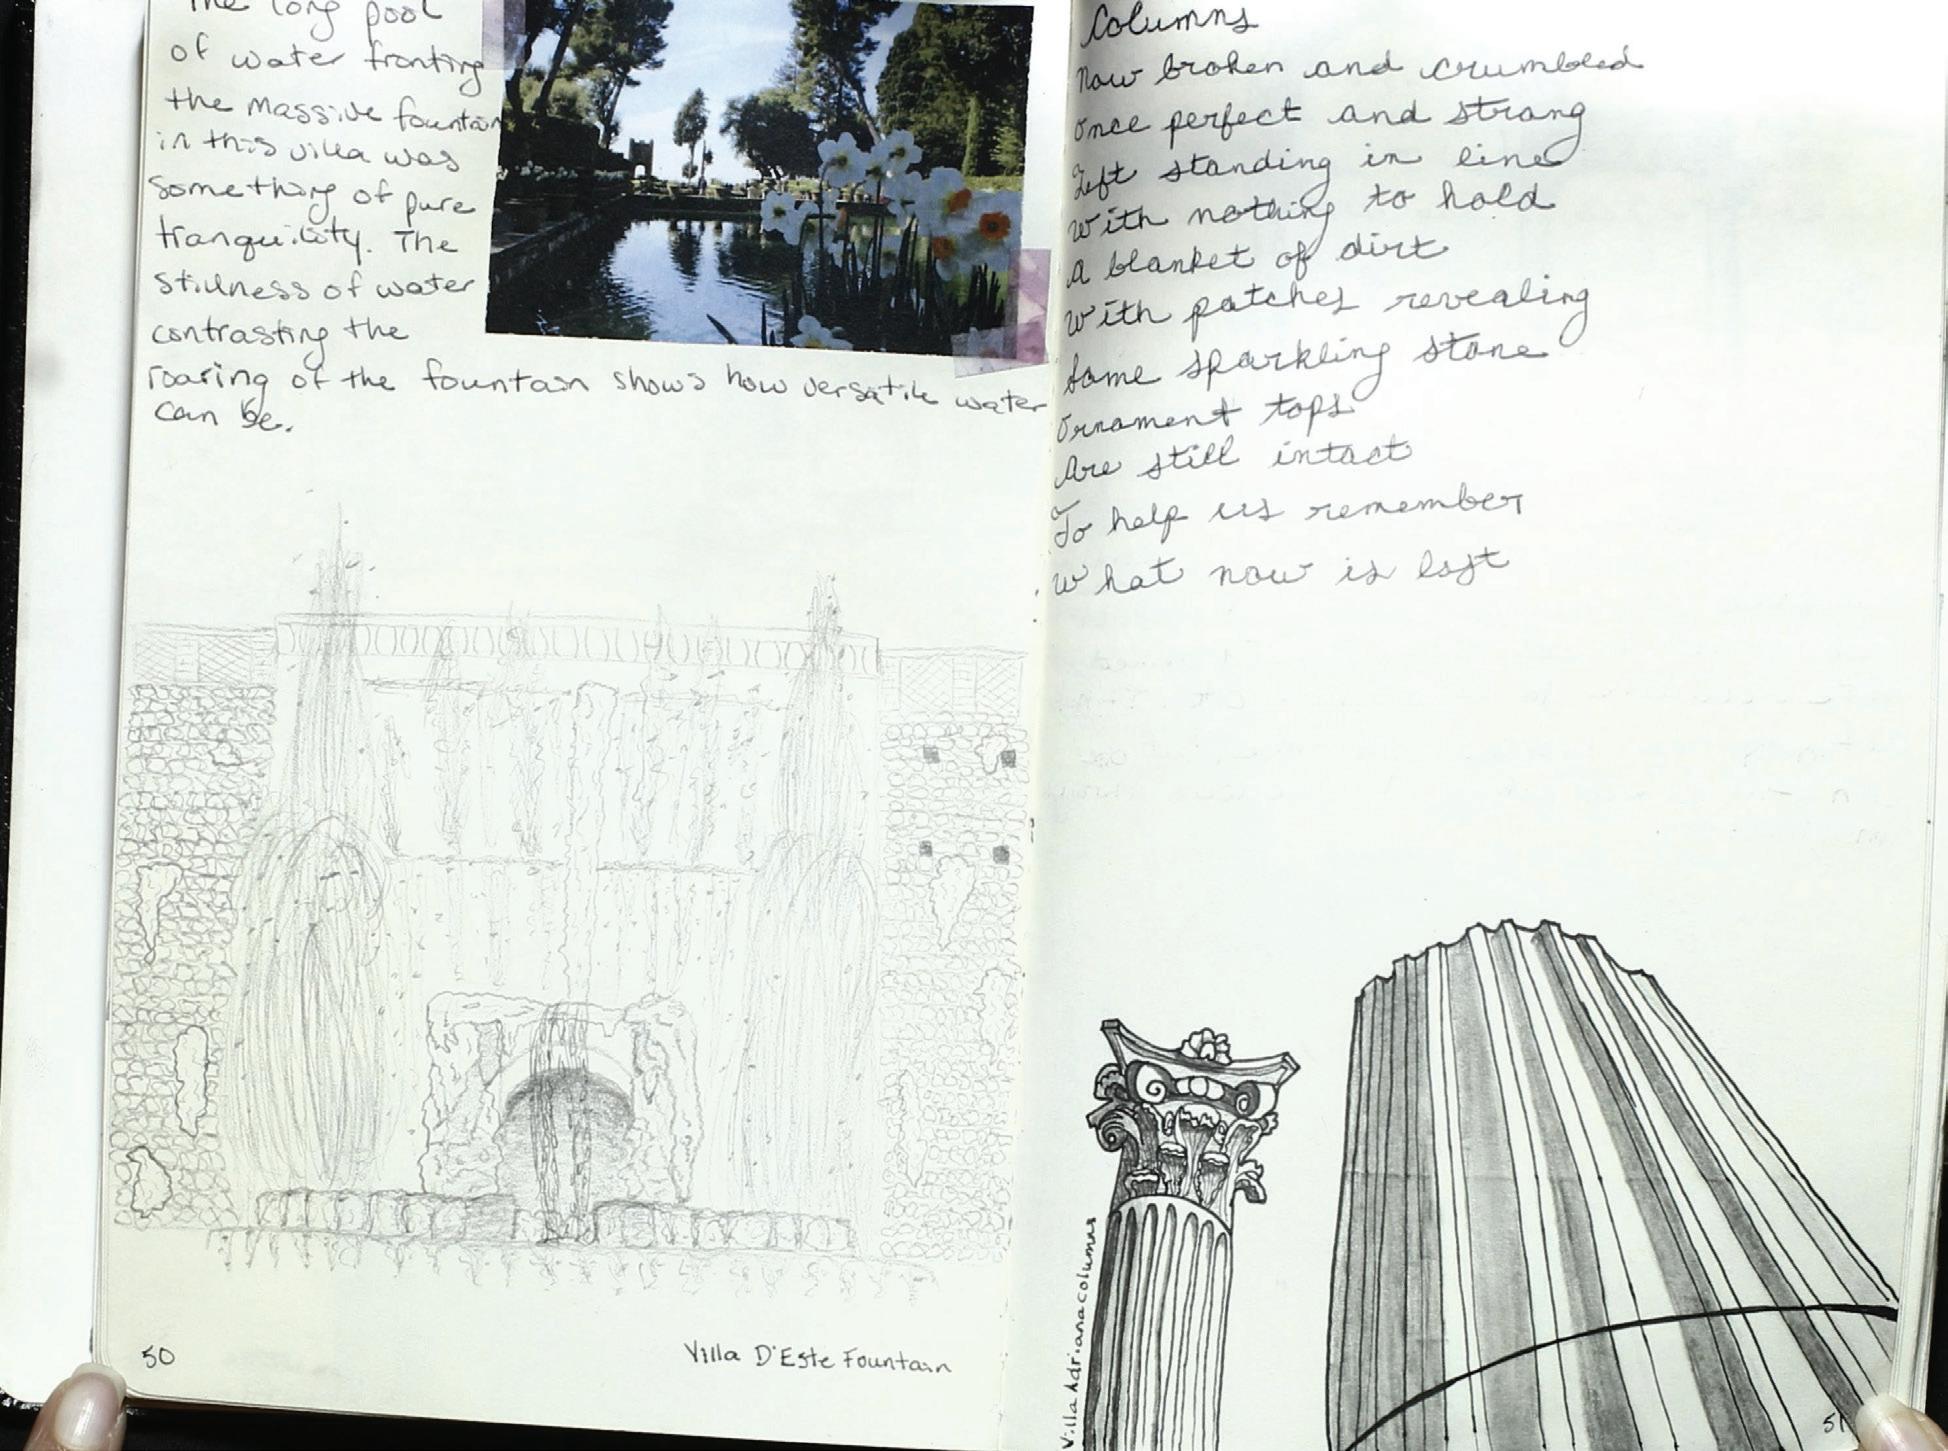 The long pool
of water fronting
the massive fountain
in this villa was
something of pure
tranquility. The
stillness of water
contrasting the
roaring of the fountain shows how versatile water
can be.
50
Villa D'Este Fountain
Columns
Now broken and crumbled
Once perfect and strong
Left standing in line
With nothing to hold
A blanket of dirt
With patches revealing
Some sparkling stone
Ornament tops
Are still intact
To help us remember
What now is lost
Villa Adriana columns
51